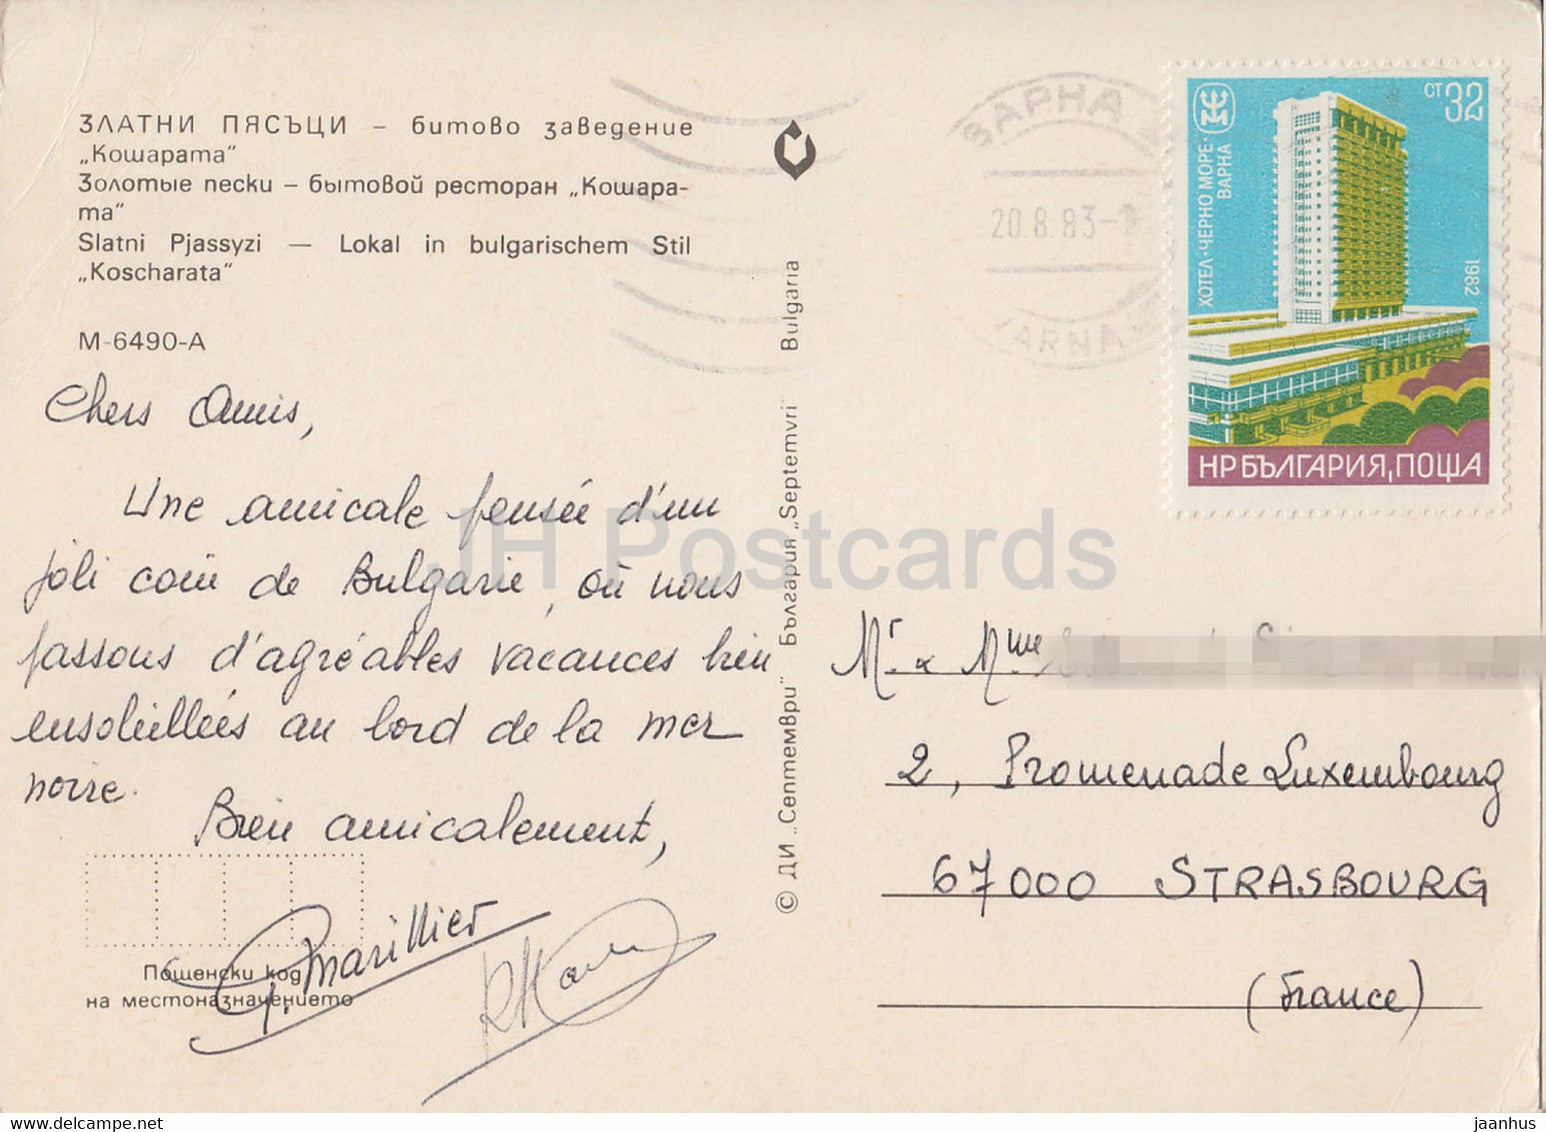 ЗЛАТНИ ПЯСЪЦИ – битово заведение
„Кошарата“
Золотые пески – бытовой ресторан „Кошара-
та“
Slatni Pjassyzi — Lokal in bulgarischem Stil
„Koscharata“
М-6490-А
Chers Amis,
Une amicale pensée d'un
joli coin de Bulgarie, où nous
passons d'agréables vacances bien
ensoleillées au bord de la mer
noire.
Bien amicalement,
Marillier
Пощенски код
на местоназначението
© ДИ „Септември“ България „Septemvri“ Bulgaria
ВАРНА
20.8.83
VARNA
ст 32
ХОТЕЛ·ЧЕРНО МОРЕ·
ВАРНА
1982
НР БЪЛГАРИЯ, ПОЩА
Mr. & Mme
2, Promenade Luxembourg
67000 STRASBOURG
(France)
JH Postcards
jaanhus
delcampe.net